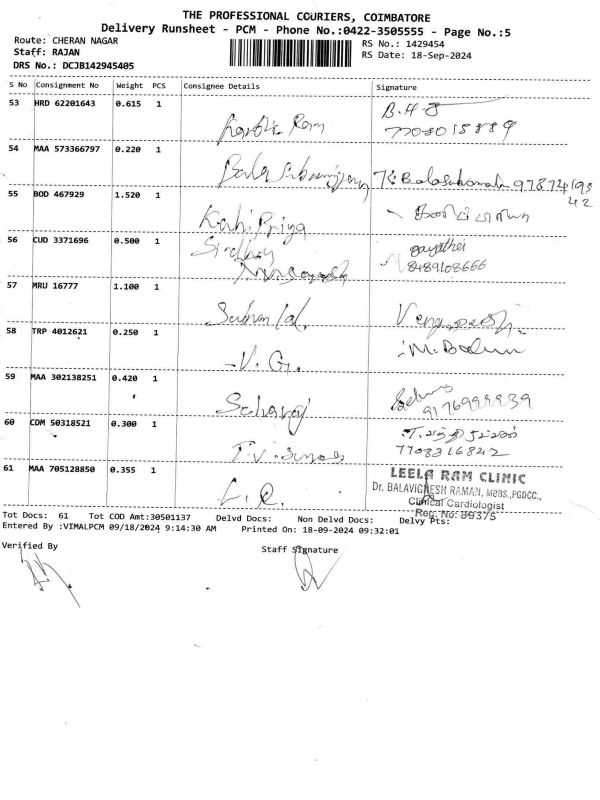 THE PROFESSIONAL COURIERS, COIMBATORE
Delivery Runsheet - PCM - Phone No.:0422-3505555 - Page No.:5
Route: CHERAN NAGAR
RS No.: 1429454
Staff: RAJAN
RS Date: 18-Sep-2024
DRS No.: DCJB142945405
S No Consignment No Weight PCS Consignee Details Signature
53 HRD 62201643 0.615 1
B.H.
Ram 7708015889
54 MAA 573366797 0.220 1
55 BOD 467929 1.520 1
Priya
56 CUD 3371696 0.500 1
gayathri
8489108666
57 MRU 16777 1.100 1
58 TRP 4012621 0.250 1
M. Balu
- V. G.
59 MAA 302138251 0.420 1
60 CDM 50318521 0.300 1
T.V.
7708316842
61 MAA 705128850 0.355 1
LEELA RAM CLINIC
Dr. BALAVIGNESH RAMAN, MBBS.,PGDCC.,
Clinical Cardiologist
Reg. No: 89375
L. R.
Tot Docs: 61 Tot COD Amt:30501137 Delvd Docs: Non Delvd Docs: Delvy Pts:
Entered By :VIMALPCM 09/18/2024 9:14:30 AM Printed On: 18-09-2024 09:32:01
Verified By Staff Signature